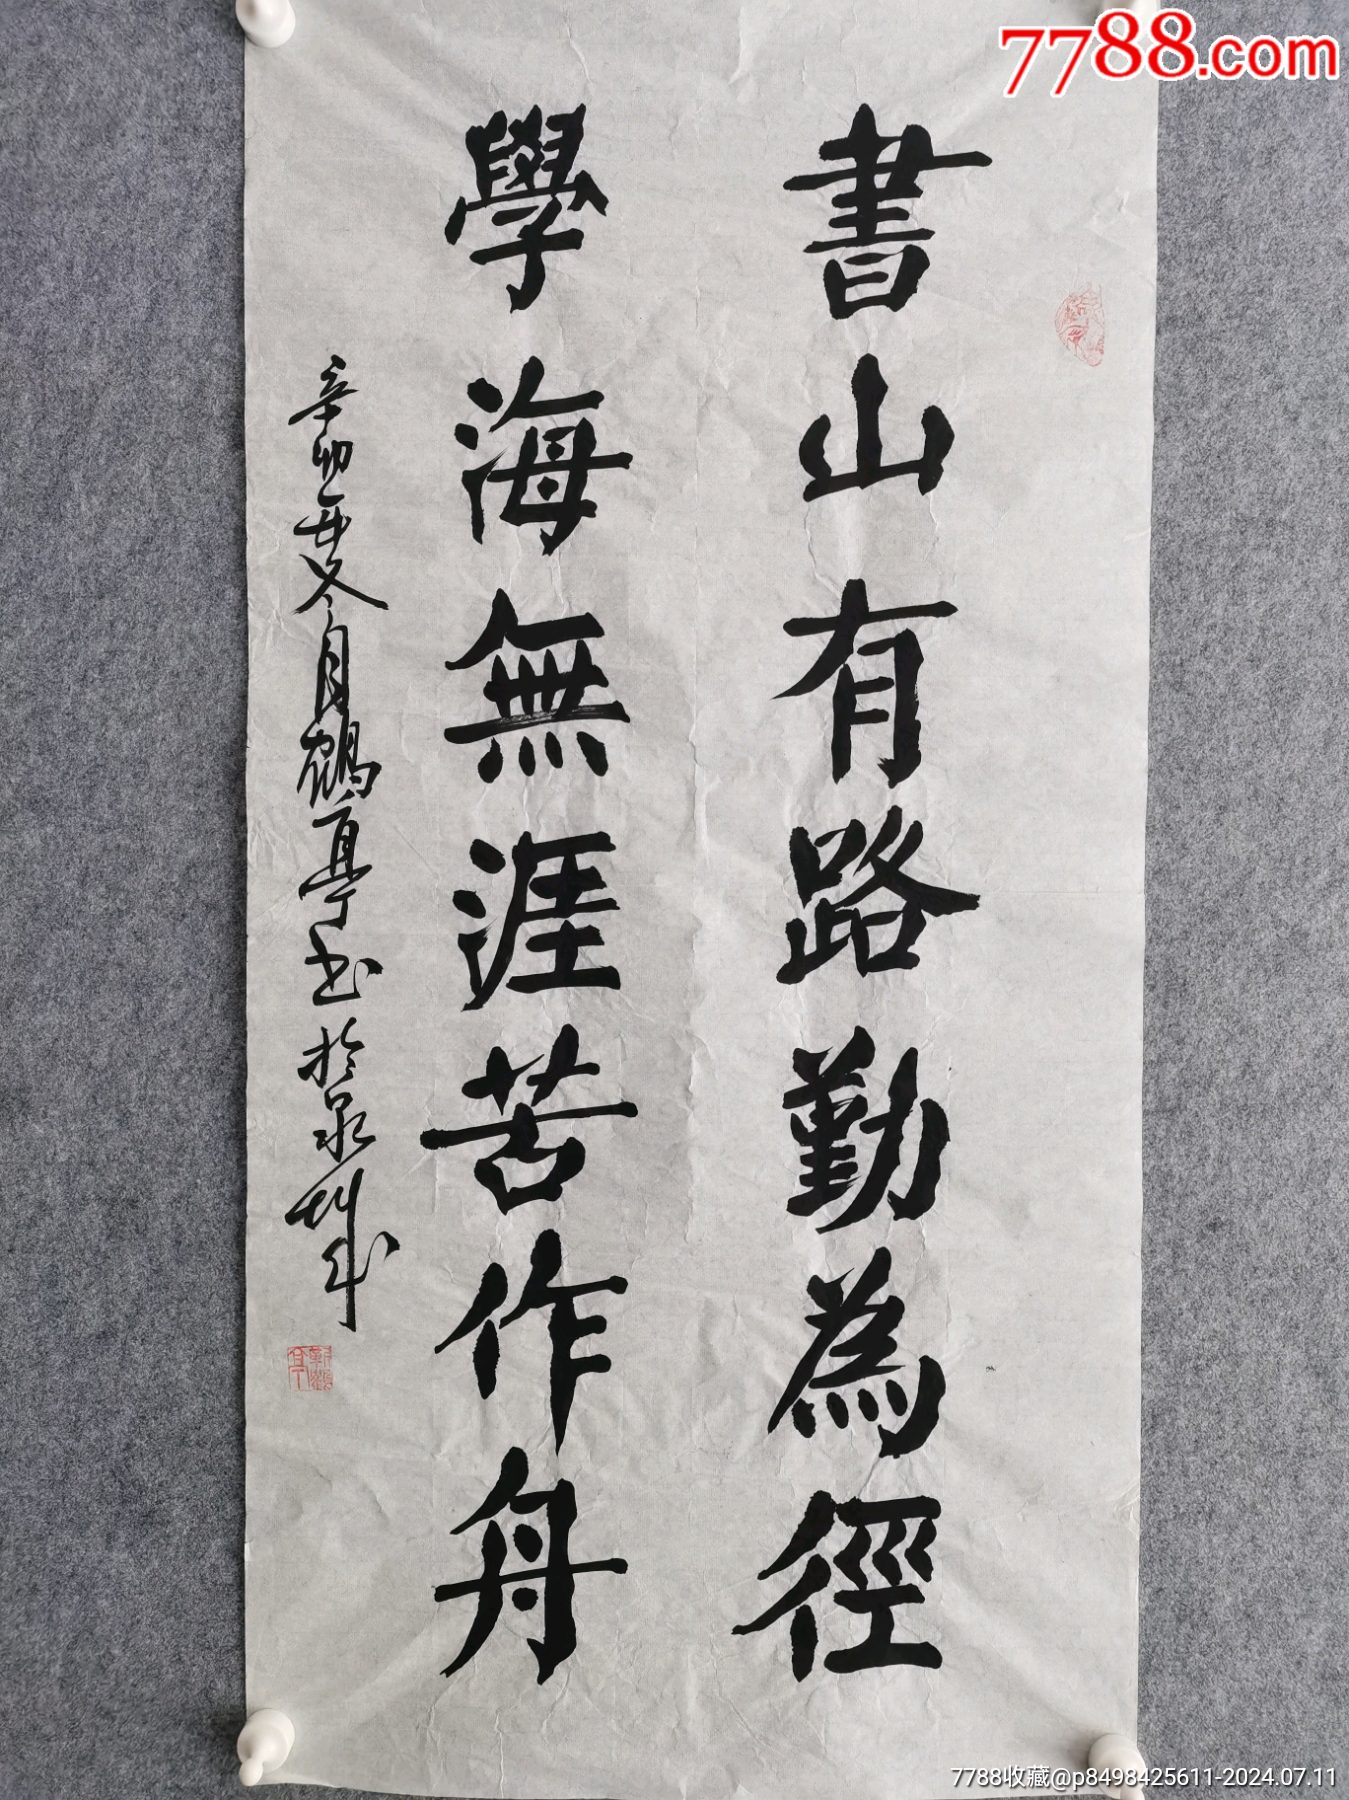 7788.com
書山有路勤為徑
學海無涯苦作舟
辛卯年冬月鶴亭书於泉城
7788收藏@p8498425611-2024.07.11